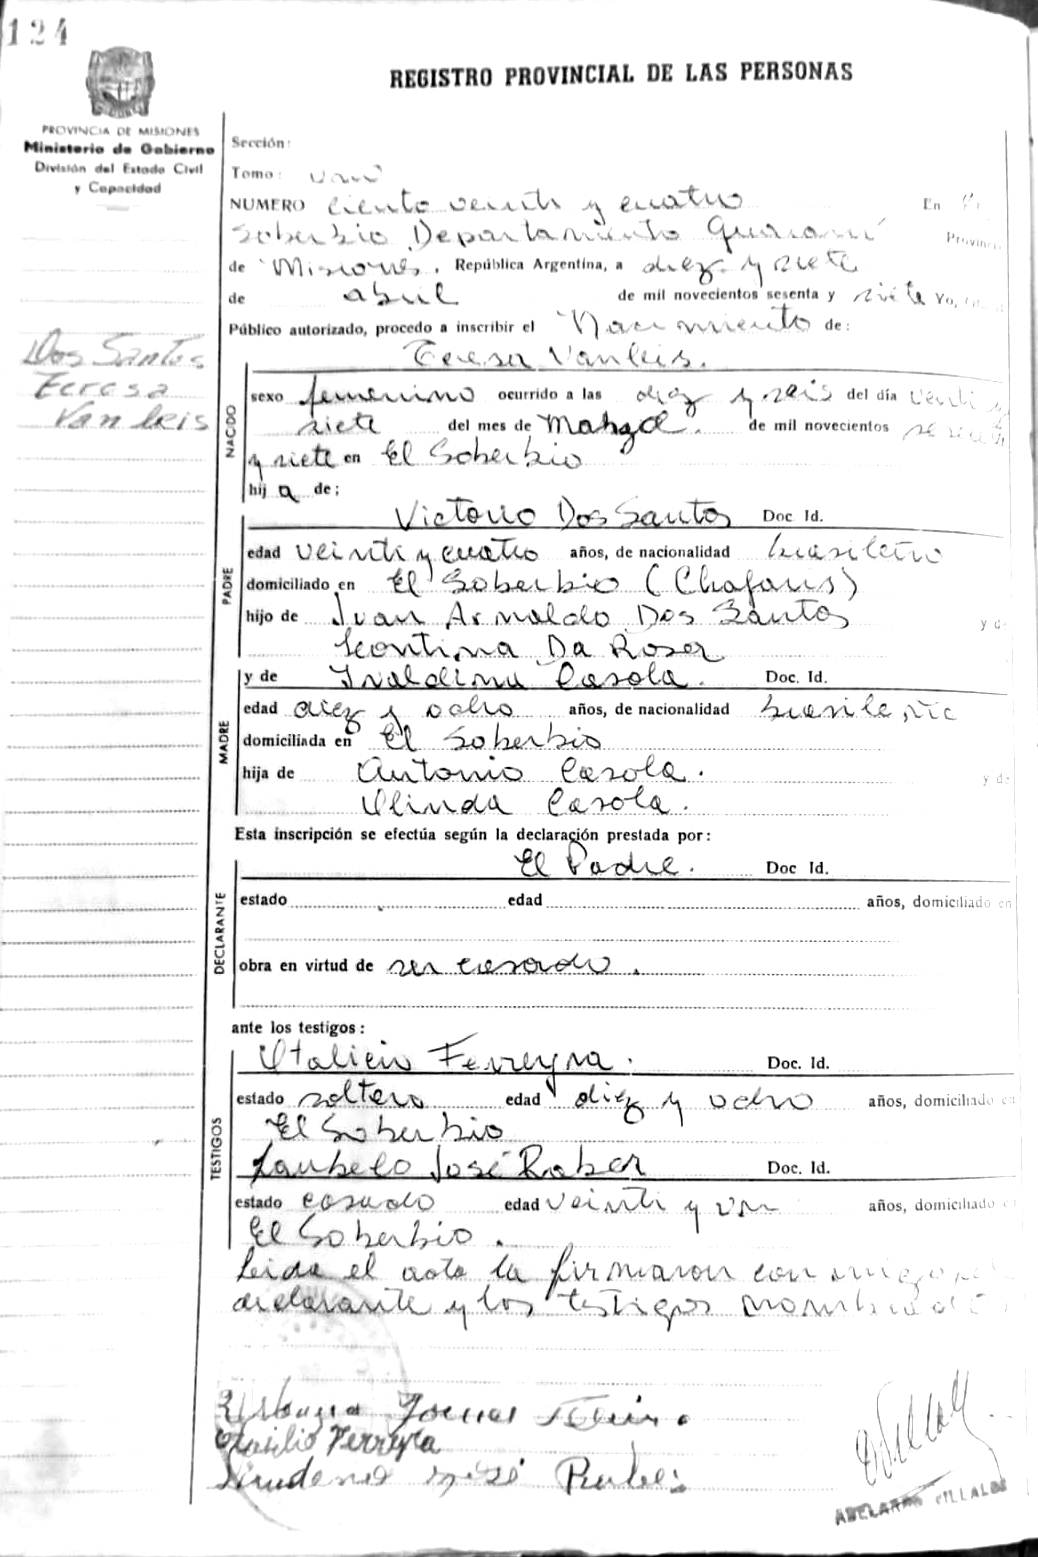 124
REGISTRO PROVINCIAL DE LAS PERSONAS
PROVINCIA DE MISIONES
Ministerio de Gobierno
División del Estado Civil
y Capacidad
Sección:
Tomo:
NUMERO ciento veinti y cuatro En El
Soberbio Departamento Guaraní Provincia
de Misiones. República Argentina, a diez y siete
de abril de mil novecientos sesenta y siete Yo,
Público autorizado, procedo a inscribir el Nacimiento de:
Dos Santos
Teresa
Vanleis
NACIDO
Teresa Vanleis.
sexo femenino ocurrido a las diez y seis del día venti y
siete del mes de Marzo. de mil novecientos sesenta
y siete en El Soberbio
hij a de;
PADRE
Victorio Dos Santos Doc Id.
edad veinti y cuatro años, de nacionalidad brasileño
domiciliado en El Soberbio (Chafaris)
hijo de Juan Arnaldo Dos Santos y de
Leontina Da Rosa
MADRE
y de Ivaldina Casola. Doc. Id.
edad diez y ocho años, de nacionalidad
domiciliada en El Soberbio
hija de Antonio Casola. y de
Olinda Casola.
Esta inscripción se efectúa según la declaración prestada por:
DECLARANTE
El Padre. Doc Id.
estado edad años, domiciliado en
obra en virtud de ser casado.
ante los testigos:
TESTIGOS
Ferreyra. Doc. Id.
estado soltero edad diez y ocho años, domiciliado en
El Soberbio
José Raber Doc. Id.
estado casado edad veinti y un años, domiciliado en
El Soberbio.
Leida el acta la firmaron con migo
declarante y los testigos
Ferreyra
ABELARDO VILLALBA